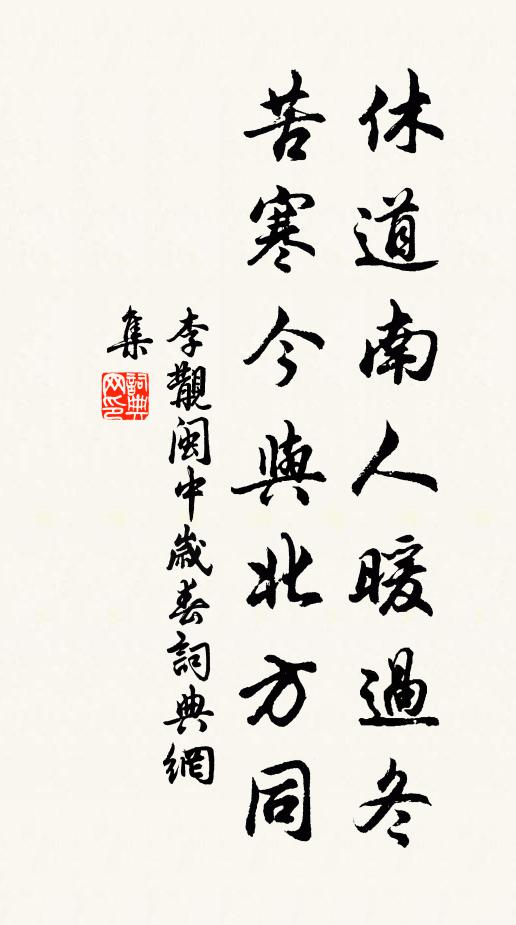 休道南人暖過冬
苦寒今與北方同
李覯閩中歲春詞典網
集
詞典
网印